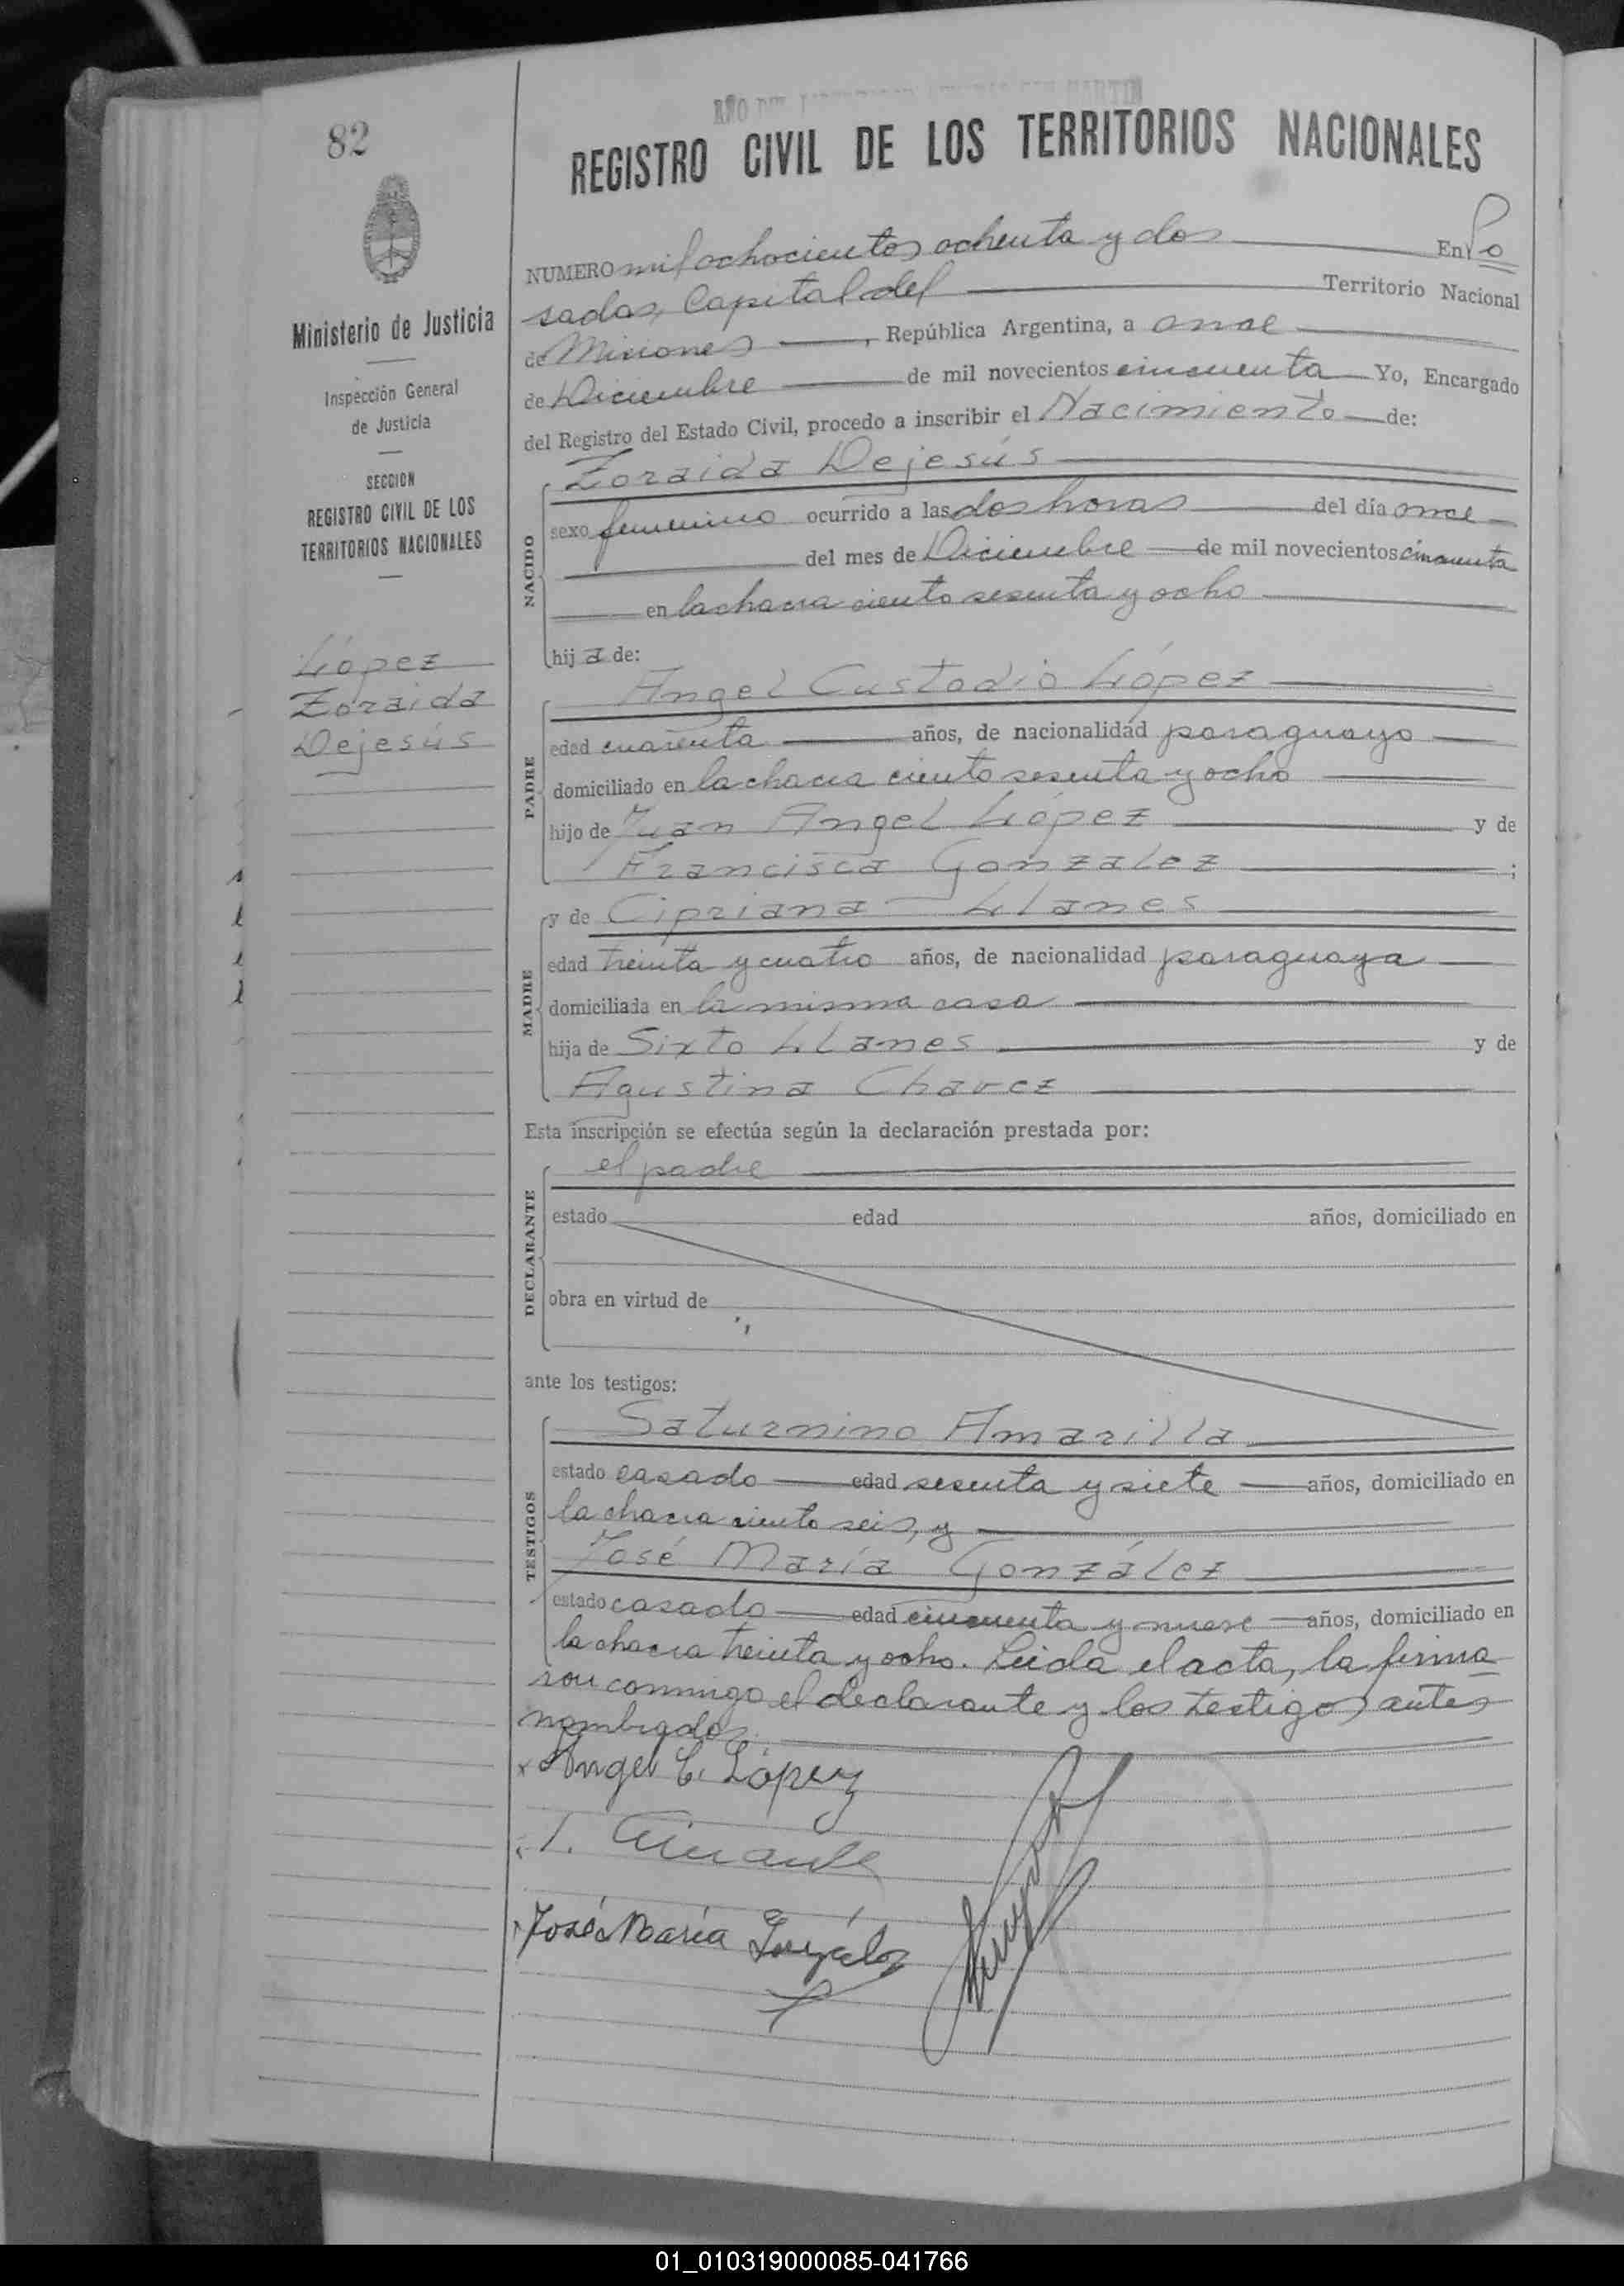 82
Ministerio de Justicia
Inspección General
de Justicia
SECCION
REGISTRO CIVIL DE LOS
TERRITORIOS NACIONALES
López
Zoraida
Dejesús
REGISTRO CIVIL DE LOS TERRITORIOS NACIONALES
NUMERO mil ochocientos ochenta y dos En Po
sadas, Capital del Territorio Nacional
de Misiones, República Argentina, a once
de Diciembre de mil novecientos cincuenta Yo, Encargado
del Registro del Estado Civil, procedo a inscribir el Nacimiento de:
NACIDO
Zoraida Dejesús
sexo femenino ocurrido a las dos horas del día once
del mes de Diciembre de mil novecientos cincuenta
en la chacra ciento sesenta y ocho
hij a de:
PADRE
Angel Custodio López
edad cuarenta años, de nacionalidad paraguayo
domiciliado en la chacra ciento sesenta y ocho
hijo de Juan Angel López y de
Francisca Gonzalez ;
MADRE
y de Cipriana Llanes
edad treinta y cuatro años, de nacionalidad paraguaya
domiciliada en la misma casa
hija de Sixto Llanes y de
Agustina Chavez
Esta inscripción se efectúa según la declaración prestada por:
DECLARANTE
el padre
estado edad años, domiciliado en
obra en virtud de
ante los testigos:
TESTIGOS
Saturnino Amarilla
estado casado edad sesenta y siete años, domiciliado en
la chacra ciento seis, y
José María González
estado casado edad cincuenta y nueve años, domiciliado en
la chacra treinta y ocho. Leida el acta, la firma
ron conmigo el declarante y los testigos antes
nombrados.
Angel C. López
José María González
01_010319000085-041766